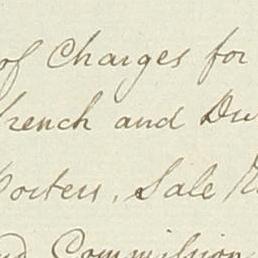 of Charges for
French and Du
Porters, Sale R
and Commission